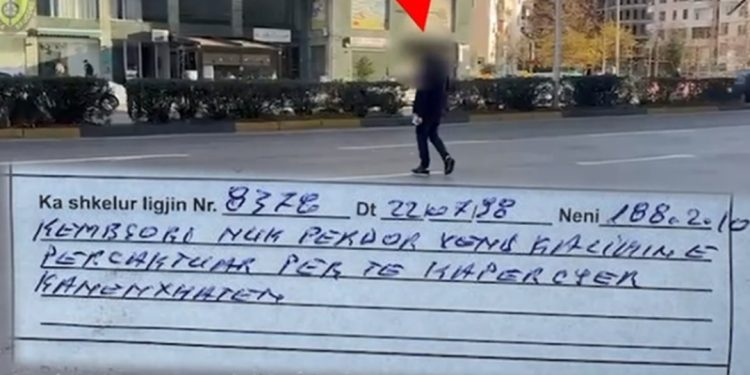 Ka shkelur ligjin Nr. 8378 Dt 22.07.98 Neni 188.2.10
KEMBSORI NUK PERDOR VEND KALIMIN E
PERCAKTUAR PER TE KAPERCYER